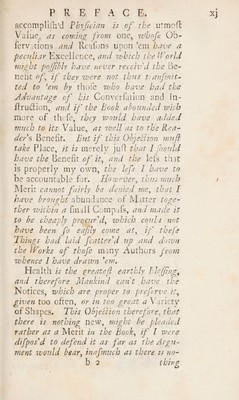 PREFACE. xj
accomplish'd Physician is of the utmost
Value, as coming from one, whose Ob-
servations and Reasons upon 'em have a
peculiar Excellence, and which the World
might possibly have never receiv'd the Be-
nefit of, if they were not thus transmit-
ted to 'em by those who have had the
Advantage of his Conversation and In-
struction, and if the Book abounded with
more of these, they would have added
much to its Value, as well as to the Rea-
der's Benefit. But if this Objection must
take Place, it is merely just that I should
have the Benefit of it, and the less that
is properly my own, the less I have to
be accountable for. However, thus much
Merit cannot fairly be denied me, that I
have brought abundance of Matter toge-
ther within a small Compass, and made it
to be cheaply procur'd, which could not
have been so easily come at, if these
Things had laid scatter'd up and down
the Works of those many Authors from
whence I have drawn 'em.
Health is the greatest earthly Blessing,
and therefore Mankind can't have the
Notices, which are proper to preserve it,
given too often, or in too great a Variety
of Shapes. This Objection therefore, that
there is nothing new, might be pleaded
rather as a Merit in the Book, if I were
dispos'd to defend it as far as the Argu-
ment would bear, inasmuch as there is no-
b 2 thing